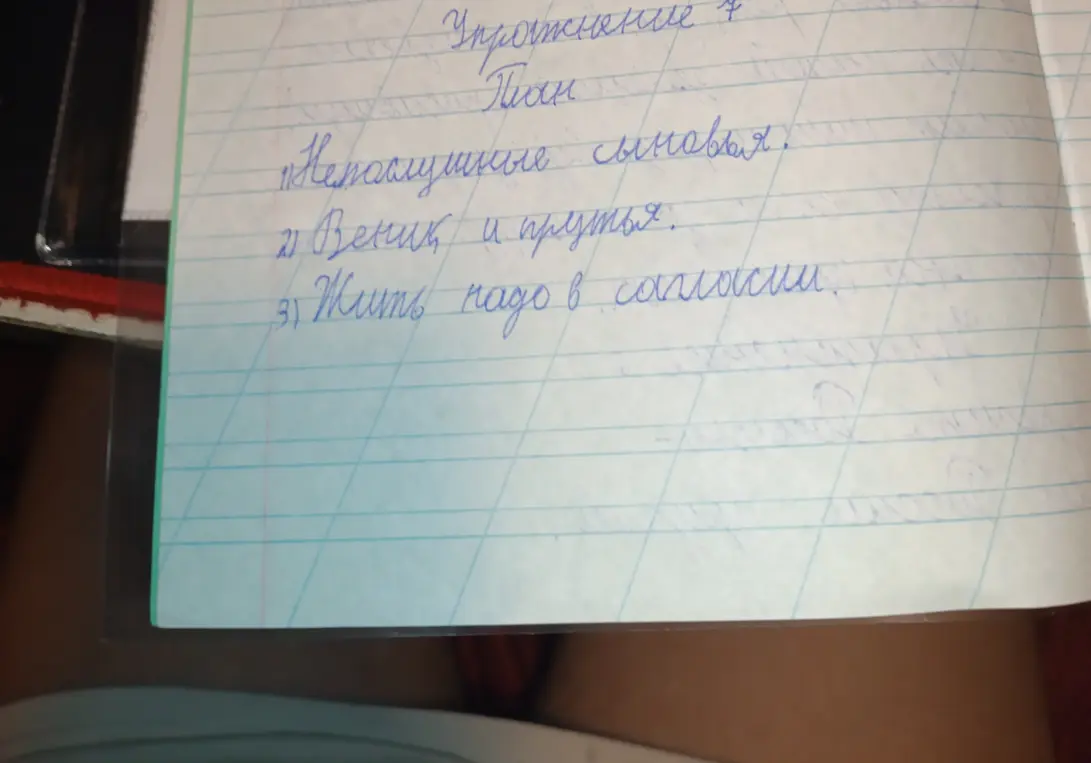 Упражнение 7
План
1) Непослушные сыновья.
2) Веник и прутья.
3) Жить надо в согласии.